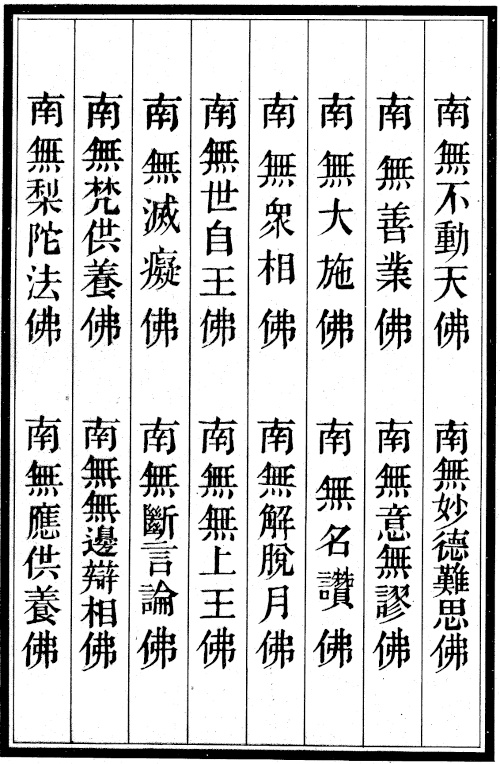 南無不動天佛　南無妙德難思佛
南無善業佛　南無意無謬佛
南無大施佛　南無名讚佛
南無衆相佛　南無解脫月佛
南無世自王佛　南無無上王佛
南無滅癡佛　南無斷言論佛
南無梵供養佛　南無無邊辯相佛
南無梨陀法佛　南無應供養佛